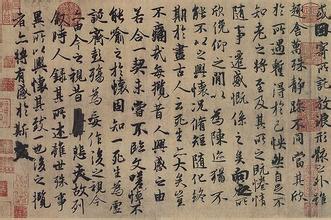 或因寄所託放浪形骸之外雖
趣舍萬殊靜躁不同當其欣
於所遇蹔得於己怏然自足不
知老之將至及其所之既惓情
隨事遷感慨係之矣向之所
欣俛仰之閒以為陳迹猶不
能不以之興懷況脩短隨化終
期於盡古人云死生亦大矣豈
不痛哉每攬昔人興感之由
若合一契未嘗不臨文嗟悼不
能喻之於懷固知一死生為虛
誕齊彭殤為妄作後之視今
亦由今之視昔悲夫故列
敘時人錄其所述雖世殊事
異所以興懷其致一也後之攬
者亦將有感於斯文